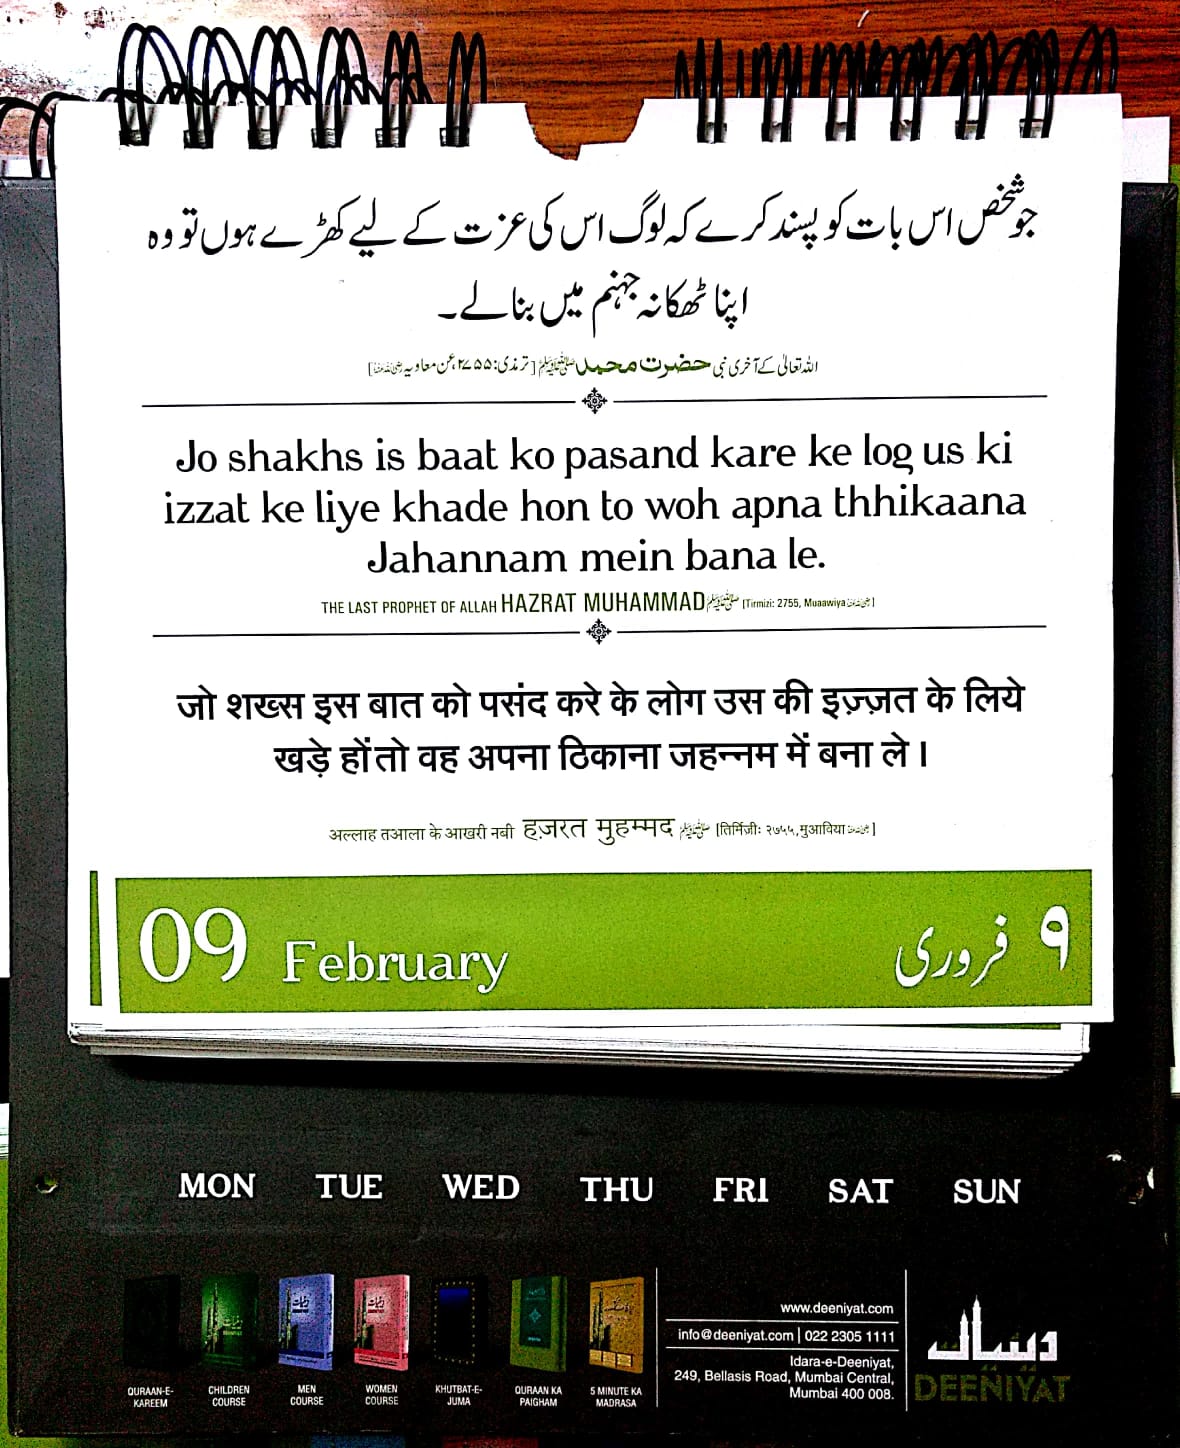 جو شخص اس بات کو پسند کرے کہ لوگ اس کی عزت کے لیے کھڑے ہوں تو وہ
اپنا ٹھکانہ جہنم میں بنالے۔
اللہ تعالیٰ کے آخری نبی حضرت محمد ﷺ [ترمذی: ۲۷۵۵، عن معاویہ ؓ]
Jo shakhs is baat ko pasand kare ke log us ki
izzat ke liye khade hon to woh apna thhikaana
Jahannam mein bana le.
THE LAST PROPHET OF ALLAH HAZRAT MUHAMMAD ﷺ [Tirmizi: 2755, Muaawiya ؓ]
जो शख्स इस बात को पसंद करे के लोग उस की इज़्ज़त के लिये
खड़े हों तो वह अपना ठिकाना जहन्नम में बना ले।
अल्लाह तआला के आखरी नबी हज़रत मुहम्मद ﷺ [तिर्मिज़ी: २७५५, मुआविया ؓ]
09 February
۹ فروری
MON TUE WED THU FRI SAT SUN
QURAAN-E-KAREEM
CHILDREN COURSE
MEN COURSE
WOMEN COURSE
KHUTBAT-E-JUMA
QURAAN KA PAIGHAM
5 MINUTE KA MADRASA
www.deeniyat.com
info@deeniyat.com | 022 2305 1111
Idara-e-Deeniyat,
249, Bellasis Road, Mumbai Central,
Mumbai 400 008.
دینیات
DEENIYAT